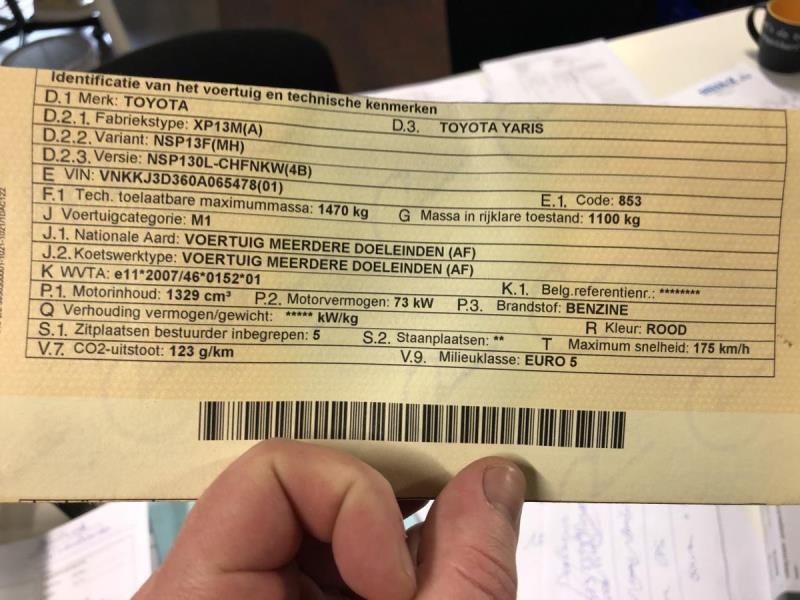 Identificatie van het voertuig en technische kenmerken
D.1 Merk: TOYOTA
D.2.1. Fabriekstype: XP13M(A) D.3. TOYOTA YARIS
D.2.2. Variant: NSP13F(MH)
D.2.3. Versie: NSP130L-CHFNKW(4B)
E VIN: VNKKJ3D360A065478(01) E.1. Code: 853
F.1 Tech. toelaatbare maximummassa: 1470 kg G Massa in rijklare toestand: 1100 kg
J Voertuigcategorie: M1
J.1. Nationale Aard: VOERTUIG MEERDERE DOELEINDEN (AF)
J.2. Koetswerktype: VOERTUIG MEERDERE DOELEINDEN (AF)
K WVTA: e11*2007/46*0152*01 K.1. Belg.referentienr.: ********
P.1. Motorinhoud: 1329 cm³ P.2. Motorvermogen: 73 kW P.3. Brandstof: BENZINE
Q Verhouding vermogen/gewicht: ***** kW/kg R Kleur: ROOD
S.1. Zitplaatsen bestuurder inbegrepen: 5 S.2. Staanplaatsen: ** T Maximum snelheid: 175 km/h
V.7. CO2-uitstoot: 123 g/km V.9. Milieuklasse: EURO 5